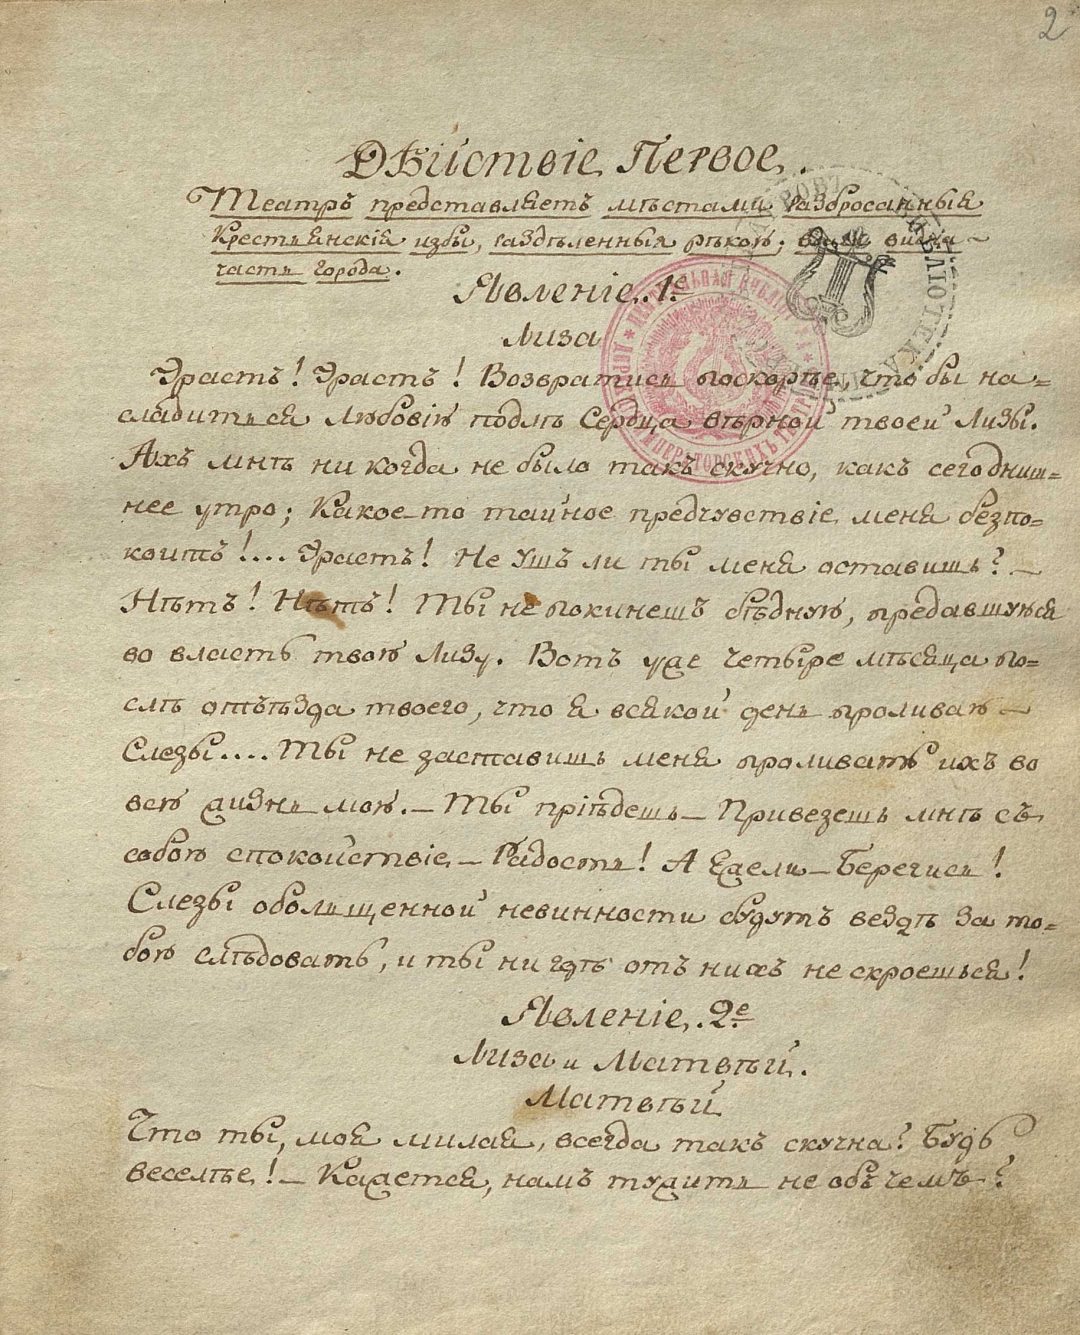 2
Дѣйствіе Первое.
Театръ представляетъ мѣстами разбросанныя
Крестьянскія избы, раздѣленныя рѣкою; видна
часть города.
Явленіе 1е
Лиза
Эрастъ! Эрастъ! Возвратись поскорѣе, что бы на=
сладиться любовію подлѣ Сердца вѣрной твоей Лизы.
Ахъ мнѣ ни когда не было такъ скучно, какъ сегоднеш=
нее утро; Какое то тайное предчувствіе меня безпо=
коитъ!... Эрастъ! Не Ушъ ли ты меня оставишь? —
Нѣтъ! Нѣтъ! Ты не покинешъ бѣдную, предавшуюся
во власть твою Лизу. Вотъ уже четыре мѣсяца по=
слѣ отъѣзда твоего, что я всякой день проливаю —
Слезы.... Ты не заставишь меня проливать ихъ во
всю жизнь мою. — Ты пріѣдешь — Привезешь мнѣ съ
собою спокойствіе — Радость! А Ежели — Берегись!
Слезы обольщенной невинности будутъ вездѣ за то=
бою слѣдовать, и ты ни гдѣ отъ нихъ не скроешься!
Явленіе 2е
Лиза и Матвѣй.
Матвѣй
Что ты, моя милая, всегда такъ скучна? Будь
веселѣе! — Кажется, намъ тужить не объ чемъ?
БИБЛІОТЕКА
ЦЕНТРАЛЬНАЯ БИБЛІОТЕКА
ИМПЕРАТОРСКИХЪ ТЕАТРОВЪ